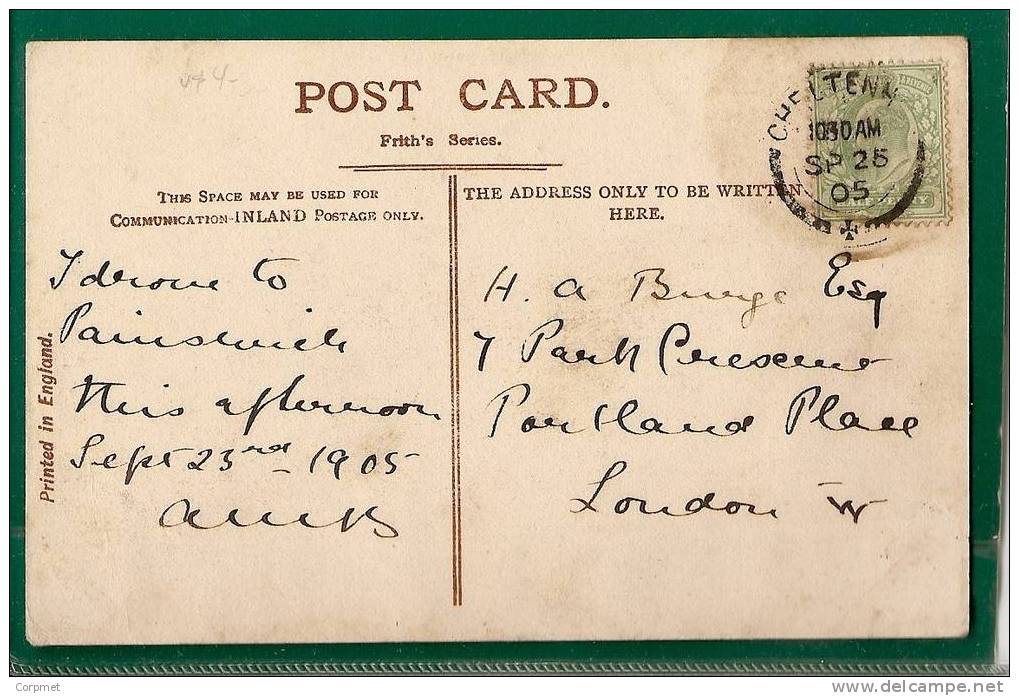 POST CARD.
Frith's Series.
THIS SPACE MAY BE USED FOR
COMMUNICATION-INLAND POSTAGE ONLY.
THE ADDRESS ONLY TO BE WRITTEN
HERE.
CHELTENH
1030AM
SP 25
05
I drove to
Painswick
this afternoon
Sept 23rd - 1905
H. A Burge Esq
7 Park Crescent
Portland Place
London W
Printed in England.
Corpmet
delcampe.net